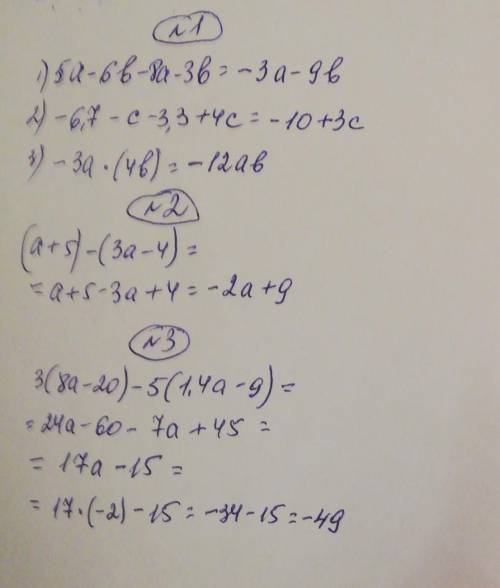 №1
1) 5a-6b-8a-3b=-3a-9b
2) -6,7-c-3,3+4c=-10+3c
3) -3a·(4b)=-12ab
№2
(a+5)-(3a-4)=
=a+5-3a+4=-2a+9
№3
3(8a-20)-5(1,4a-9)=
=24a-60-7a+45=
=17a-15=
=17·(-2)-15=-34-15=-49